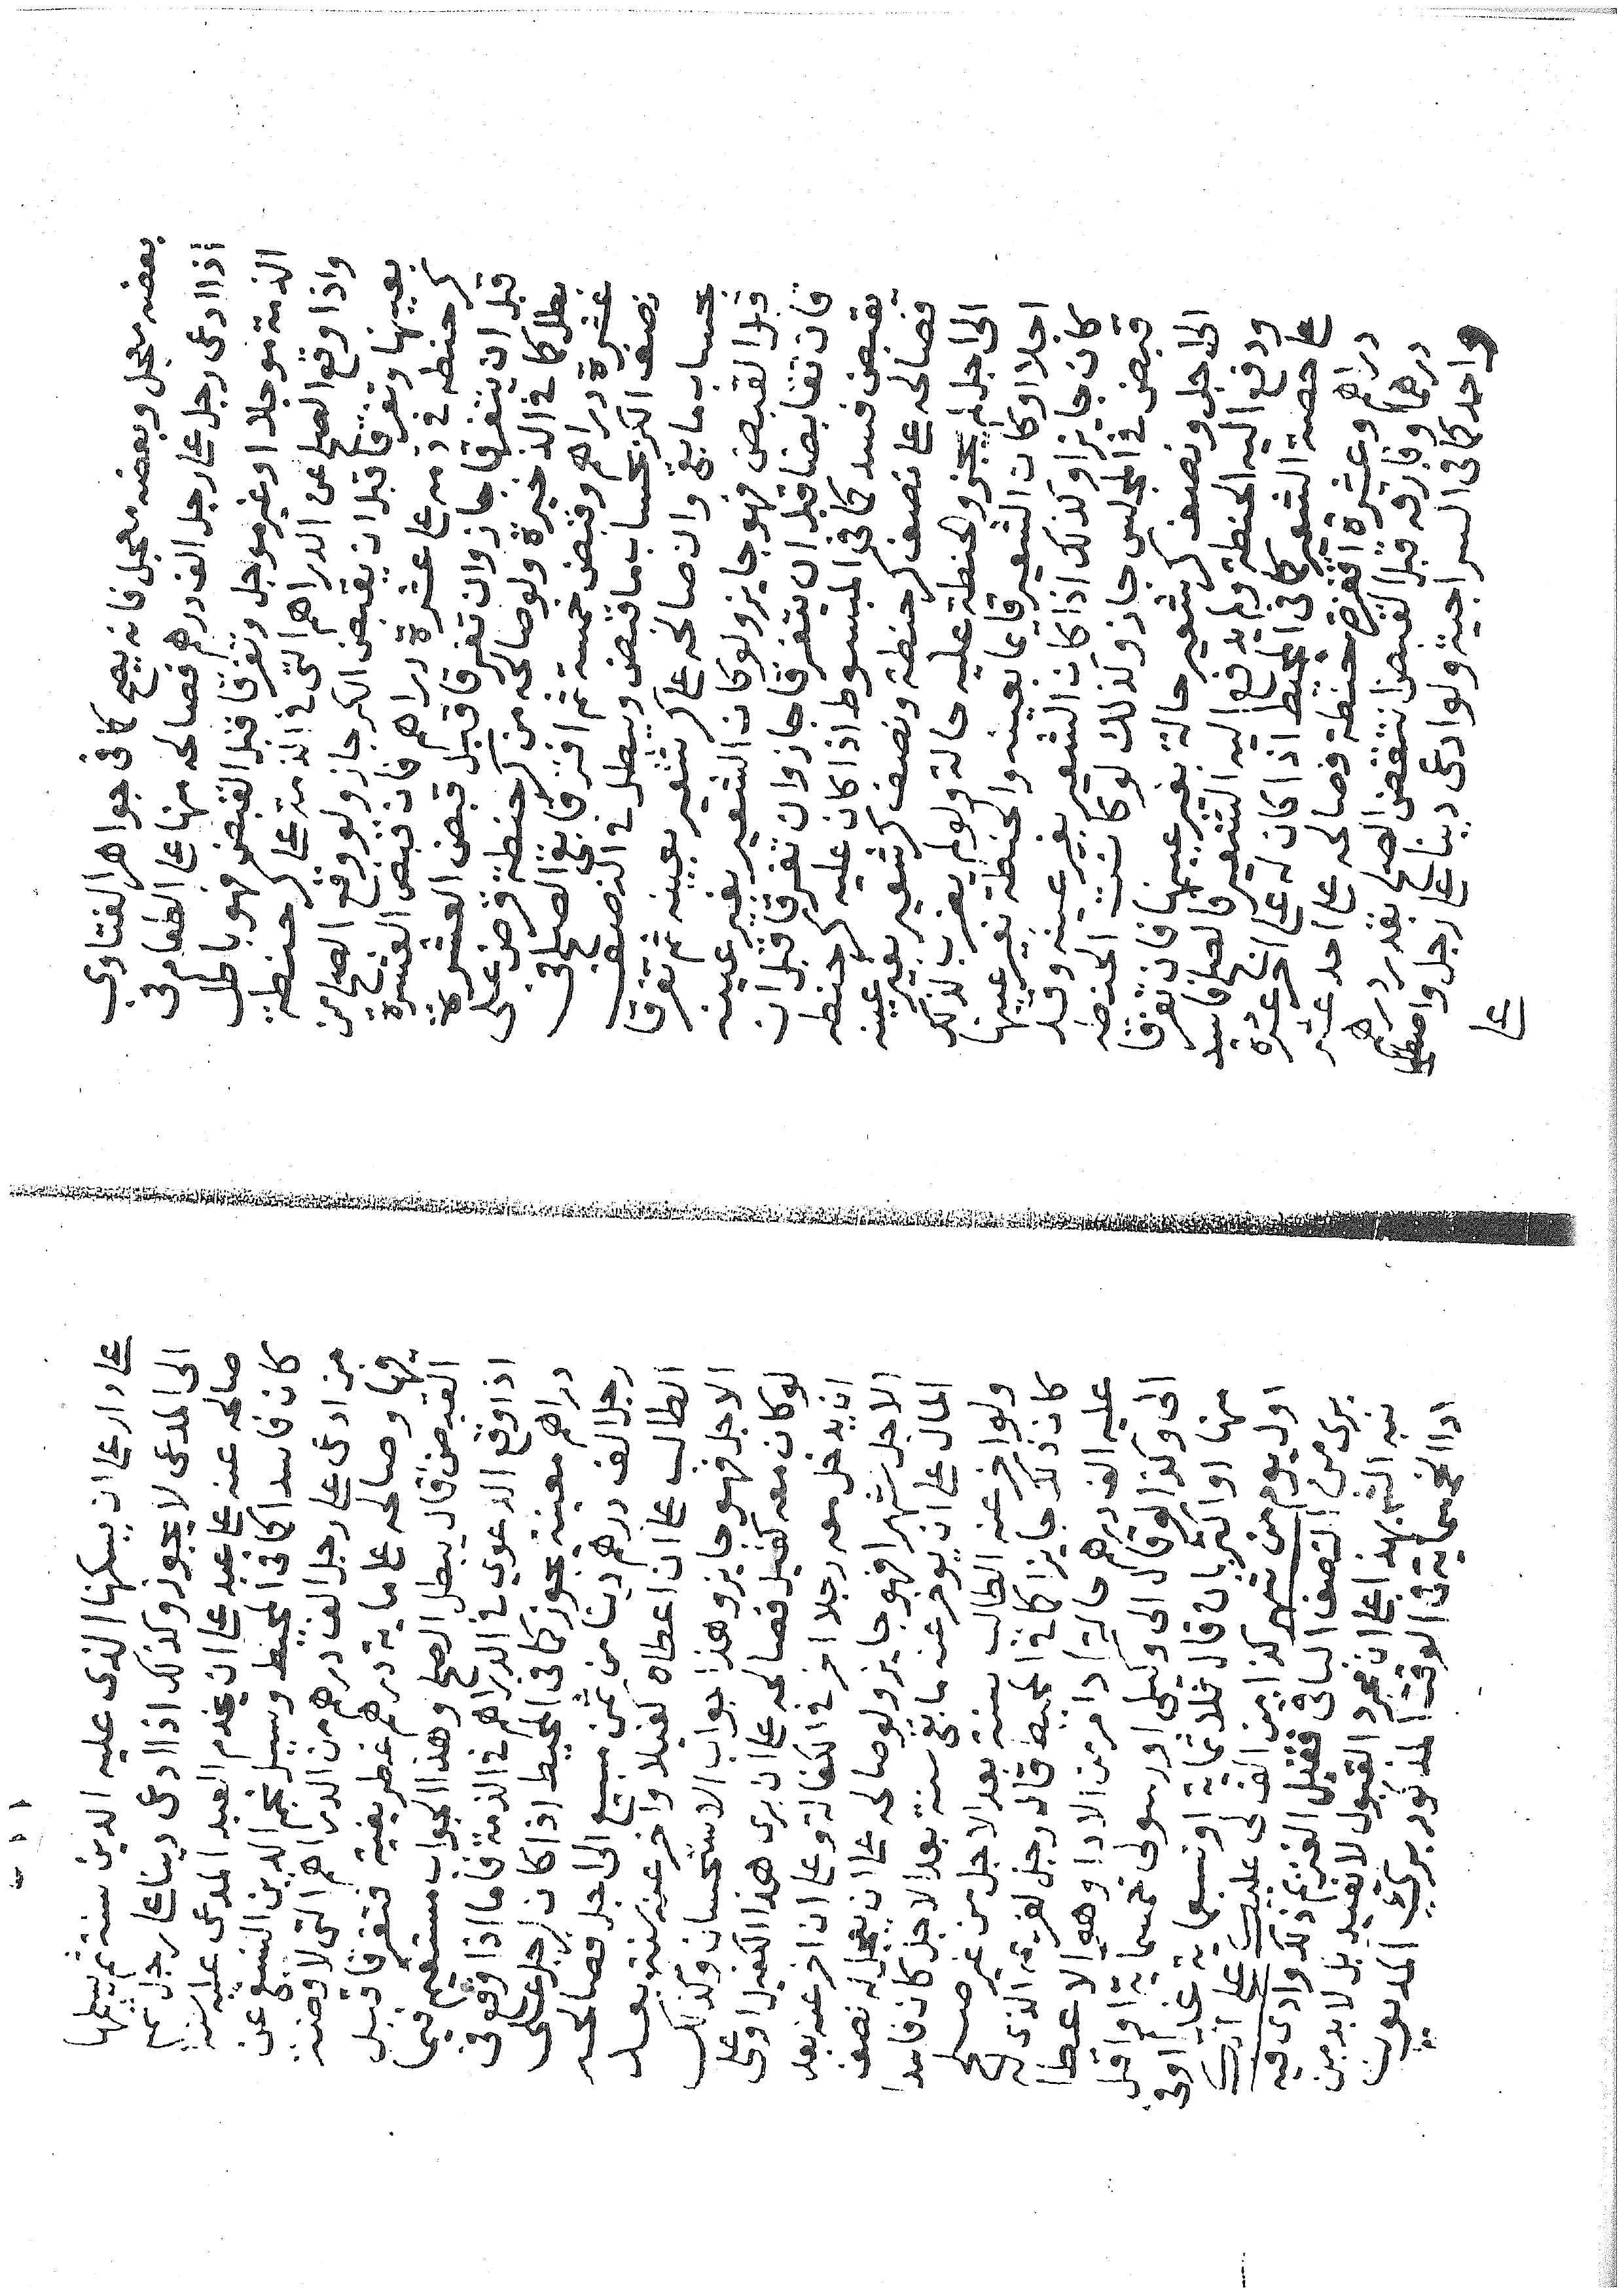 بعضه معجل وبعضه مؤجل فانه يصح كما فى جواهر الفتاوى
اذا ادى رجل على رجل الف درهم فصالحه منها على الطعام فى
الذمة موجلا او غير موجل وتفرقا قبل القبض فهو باطل
واذا وقع الصلح عن الدراهم التى فى الذمة على كر حنطة
بعينها وتفرقا قبل ان يقبض الكر جاز ولو وقع الصلح من
كر حنطه فى ذمه على عشرة دراهم فان قبض العشرة
قبل ان يتفرقا جاز وان تفرقا قبل قبض العشرة
بطل كما فى الذخيرة ولو صالحه من كر حنطة قرض على
عشرة دراهم وقبض خمسة ثم افترقا بقى الصلح فى
نصف الكر بحساب ما قبض ويبطل فى النصف
بحساب ما بقى وان صالحه على كر شعير بعينه ثم تفرقا
قبل القبض فهو جايز ولو كان الشعير بغير عينه
فان تقابضا قبل ان يتفرقا جاز وان تفرقا قبل ان
يقبض فسد كما فى المبسوط اذا كان عليه كر حنطه
فصالحه على نصف كر حنطة ونصف كر شعير بغير عينه
الى اجل لم يجز وحنطة عليه حالة ولو لم يضرب لذلك
اجلا او كان الشعير قايما بعينه والحنطة بغير عينها
كان جايزا وكذلك اذا كان الشعير بغير عينه وقد
قبض فى المجلس جاز وكذلك لو كانت الحنطه
الى اجل ونصف كر شعير حالة بغير عينها فان تفرقا
ودفع اليه الحنطة ولم يدفع اليه الشعير فالصلح فاسد
على حصة الشعير كما فى المحيط اذا كان له على اخر عشرة
دراهم وعشرة اقفزة حنطة فصالحه على احد عشر
درهما وفارقه قبل القبض انتقض الصلح بقدر درهم
واحد كما فى السراجية ولو ادى دينا على رجل واصطلحا
على
على دار على ان يسكنها الذى عليه الدين سنة ثم يسلمها
الى المدعى لا يجوز وكذلك اذا ادى دينا على رجل ثم
صالحه عنه على عبد على ان يخدم العبد المدعى عليه سنة
كان فاسدا كما فى المحيط وسيل نجم الدين النسفى عن
من ادى على رجل الف درهم من الدراهم التى لا فضة
فيها وصالحه على ماية درهم غطريفية فتفرقا قبل
القبض قال يبطل الصلح وهذا الجواب مستقيم فى
اذا وقع الدعوى فى الدراهم فى الذمة فاما اذا وقع فى
دراهم معينة يجوز كما فى المحيط اذا كان لرجل على
رجل الف درهم دينا من ثمن مبيع الى اجل فصالحه
الطالب على ان اعطاه كفيلا واخر عنه سنة بعد
الاجل فهو جايز وهذا جواب الاستحسان وكذلك
لو كان معه كفيل فصالحه على ان برى هذا الكفيل او على
ان يدخل معه رجلا اخر فى الكفالة وعلى ان اخر عنه بعد
الاجل شهرا فهو جايز ولو صالحه على ان يعجل له نصف
المال على ان يوخر عنه ما بقى سنة بعد الاجل كان فاسدا
ولو اخر عنه الطالب سنة بعد الاجل من غير صلح
كان ذلك جايزا كما فى المحيط قال رجل لغريمه الذى له
عليه الف درهم حالة اد امرتن الادا وهو الاعطا
الى وكذا لو قال الى وكيلى او رسولى خمسماية او اقل
منها او اكثر بان قال ثلاثماية او تسعماية غدا او فى
اول يوم من شهر كذا من الف لى عليك على انك
برى من النصف الباقى فقبل الغريم ذلك وادى فيه
نبه الشهد اعلى ان مجرد القبول لا يفيد بل لا بد من
ادا الخمسماية فى الوقت المذكور برى المديون